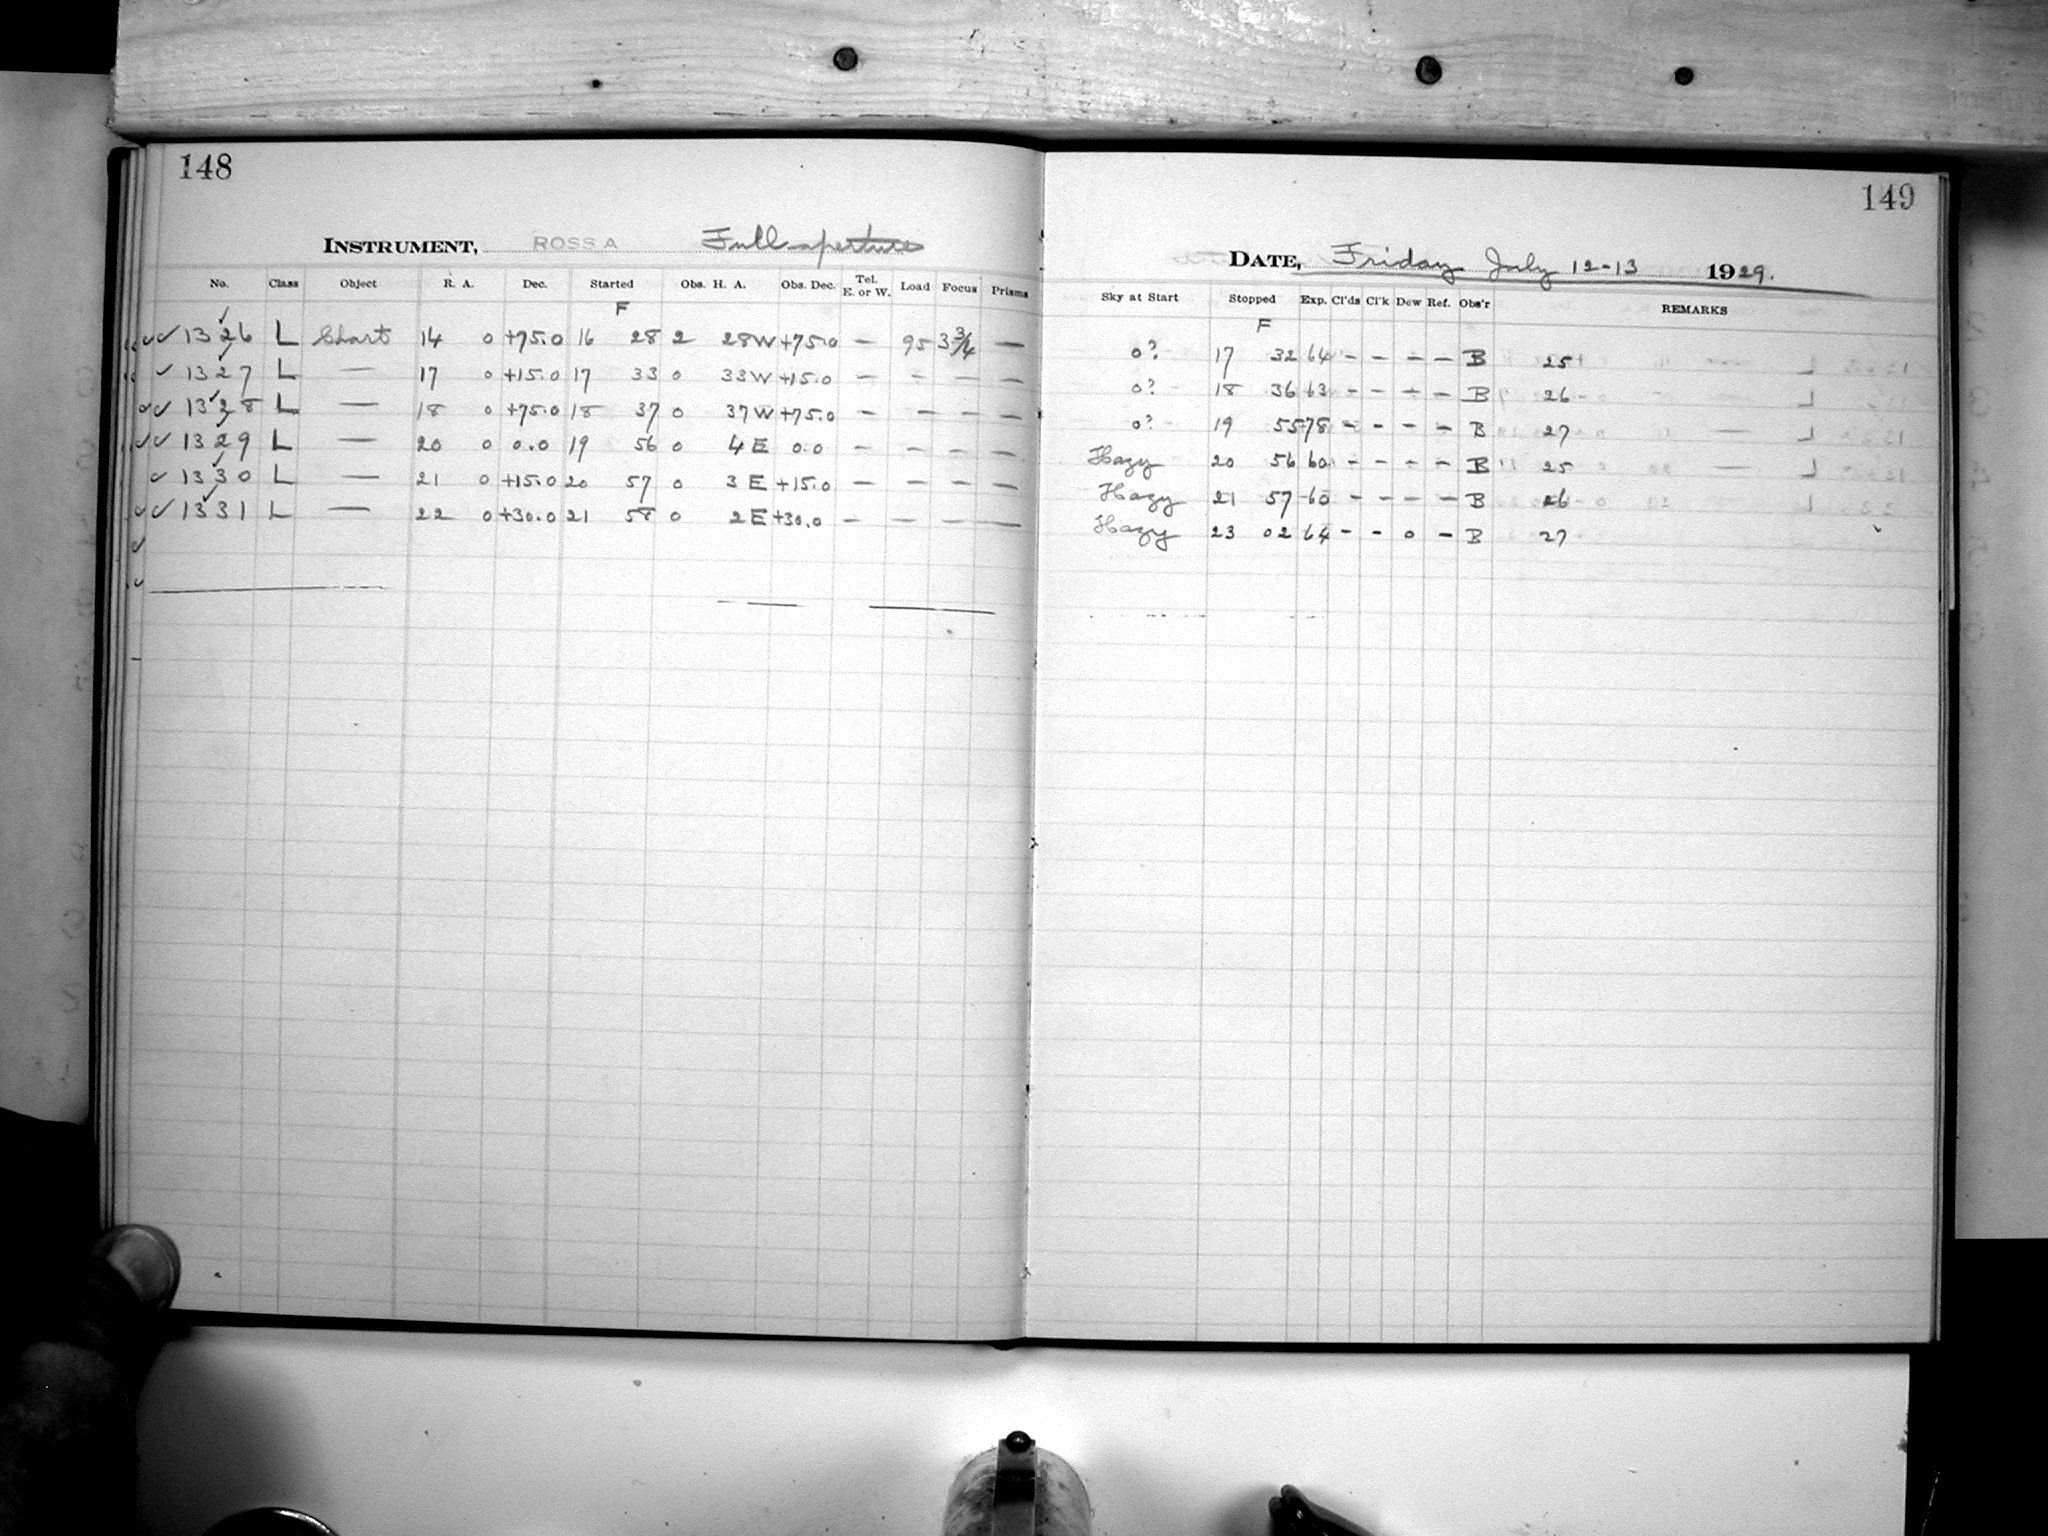 148
INSTRUMENT, ROSS A Full aperture
No. Class Object R. A. Dec. Started Obs. H. A. Obs. Dec. Tel. E. or W. Load Focus Prisms
F
✓✓ 1326 L Chart 14 0 +75.0 16 28 2 28W +75.0 — 95 3 3/4 —
✓ 1327 L — 17 0 +15.0 17 33 0 33W +15.0 — — — —
✓✓ 1328 L — 18 0 +75.0 18 37 0 37W +75.0 — — — —
✓✓ 1329 L — 20 0 0.0 19 56 0 4E 0.0 — — — —
✓ 1330 L — 21 0 +15.0 20 57 0 3E +15.0 — — — —
✓✓ 1331 L — 22 0 +30.0 21 58 0 2E +30.0 — — — —
149
DATE, Friday July 12-13 1929.
Sky at Start Stopped Exp. Cl'ds Cl'k Dew Ref. Obs'r REMARKS
F
0? 17 32 64 - - - - B 25
0? 18 36 63 - - - - B 26
0? 19 55 78 - - - - B 27
Hazy 20 56 60 - - - - B 25
Hazy 21 57 60 - - - - B 26
Hazy 23 02 64 - - 0 - B 27